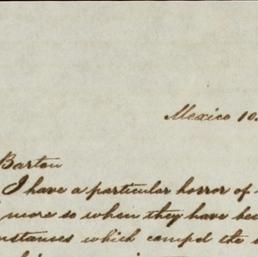 Mexico 10
Barton
I have a particular horror of
more so when they have be
mstances which compel the